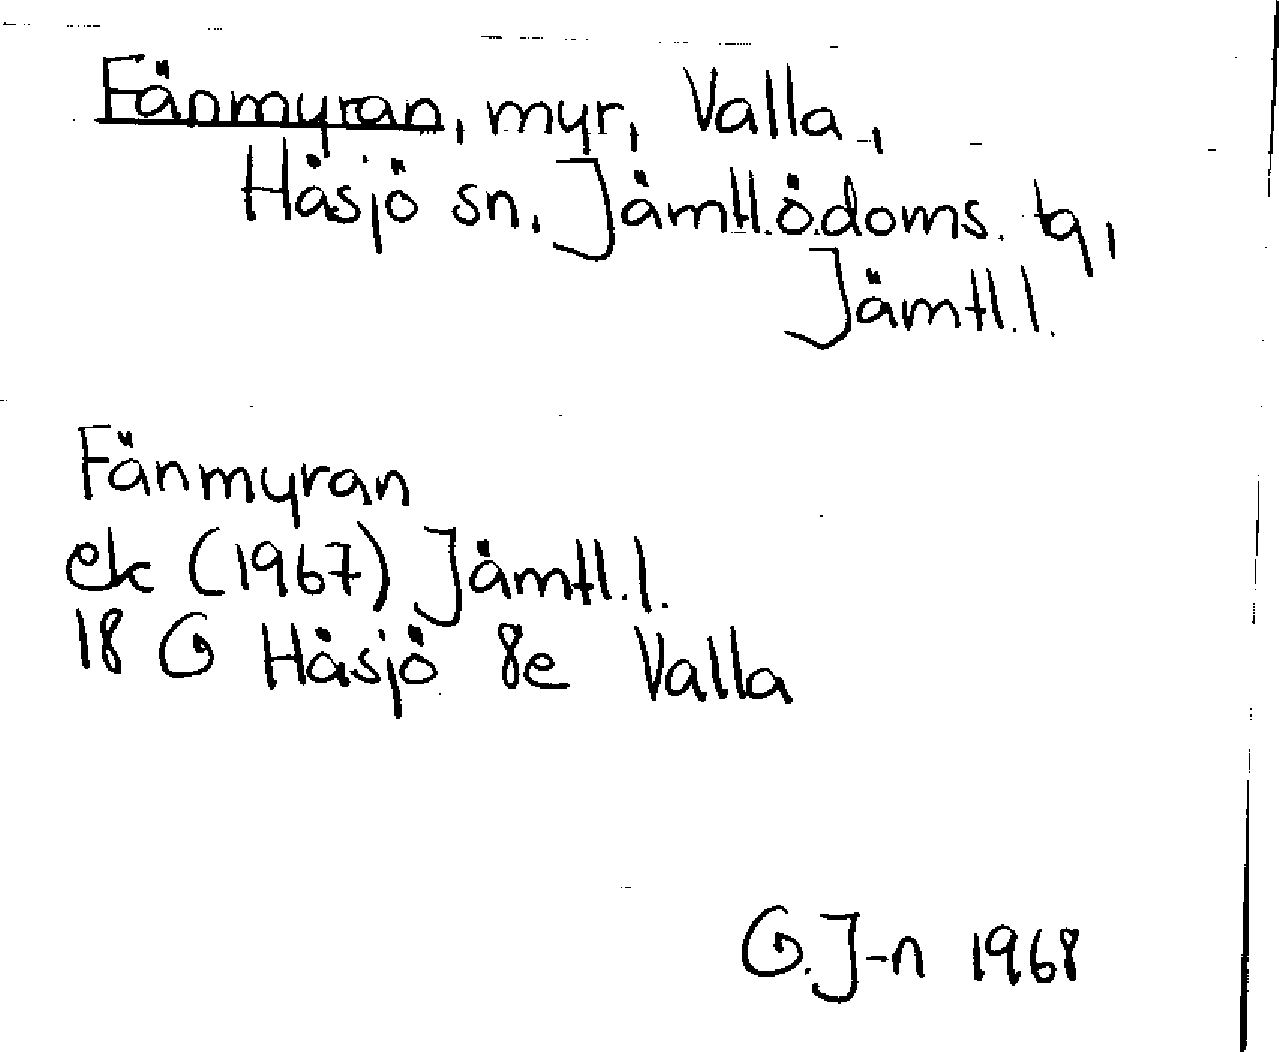 Fänmyran, myr, Valla,
Håsjö sn, Jämtl.ö.doms. tg,
Jämtl.l.
Fänmyran
ek (1967) Jämtl.l.
18 G Håsjö 8e Valla
G.J-n 1968